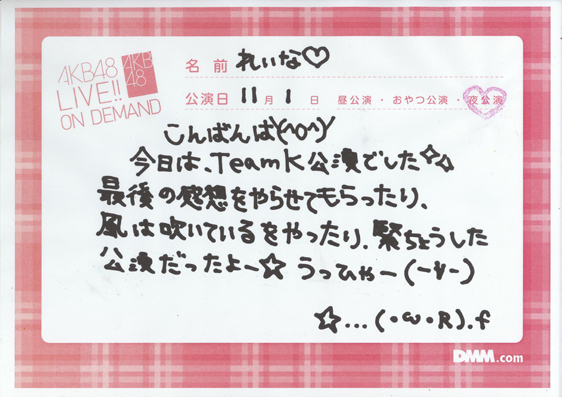 AKB48
LIVE!!
ON DEMAND
AKB
48
名前 れいな♡
公演日 11月1日 昼公演・おやつ公演・夜公演
こんばんは\(^o^)/
今日は、TeamK公演でした☆☆
最後の感想をやらせてもらったり、
風は吹いているをやったり、緊ちょうした
公演だったよー☆ うっひゃー(-∀-)
☆...(・ω・R).f
DMM.com